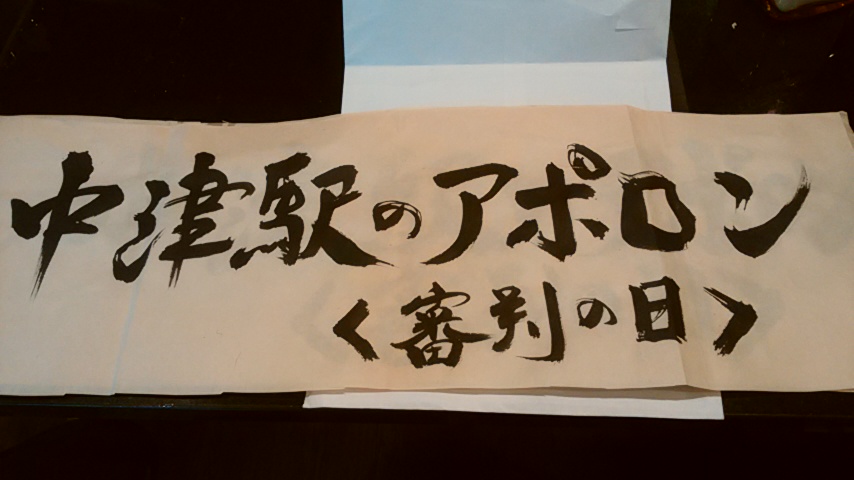 中津駅のアポロン
＜審判の日＞